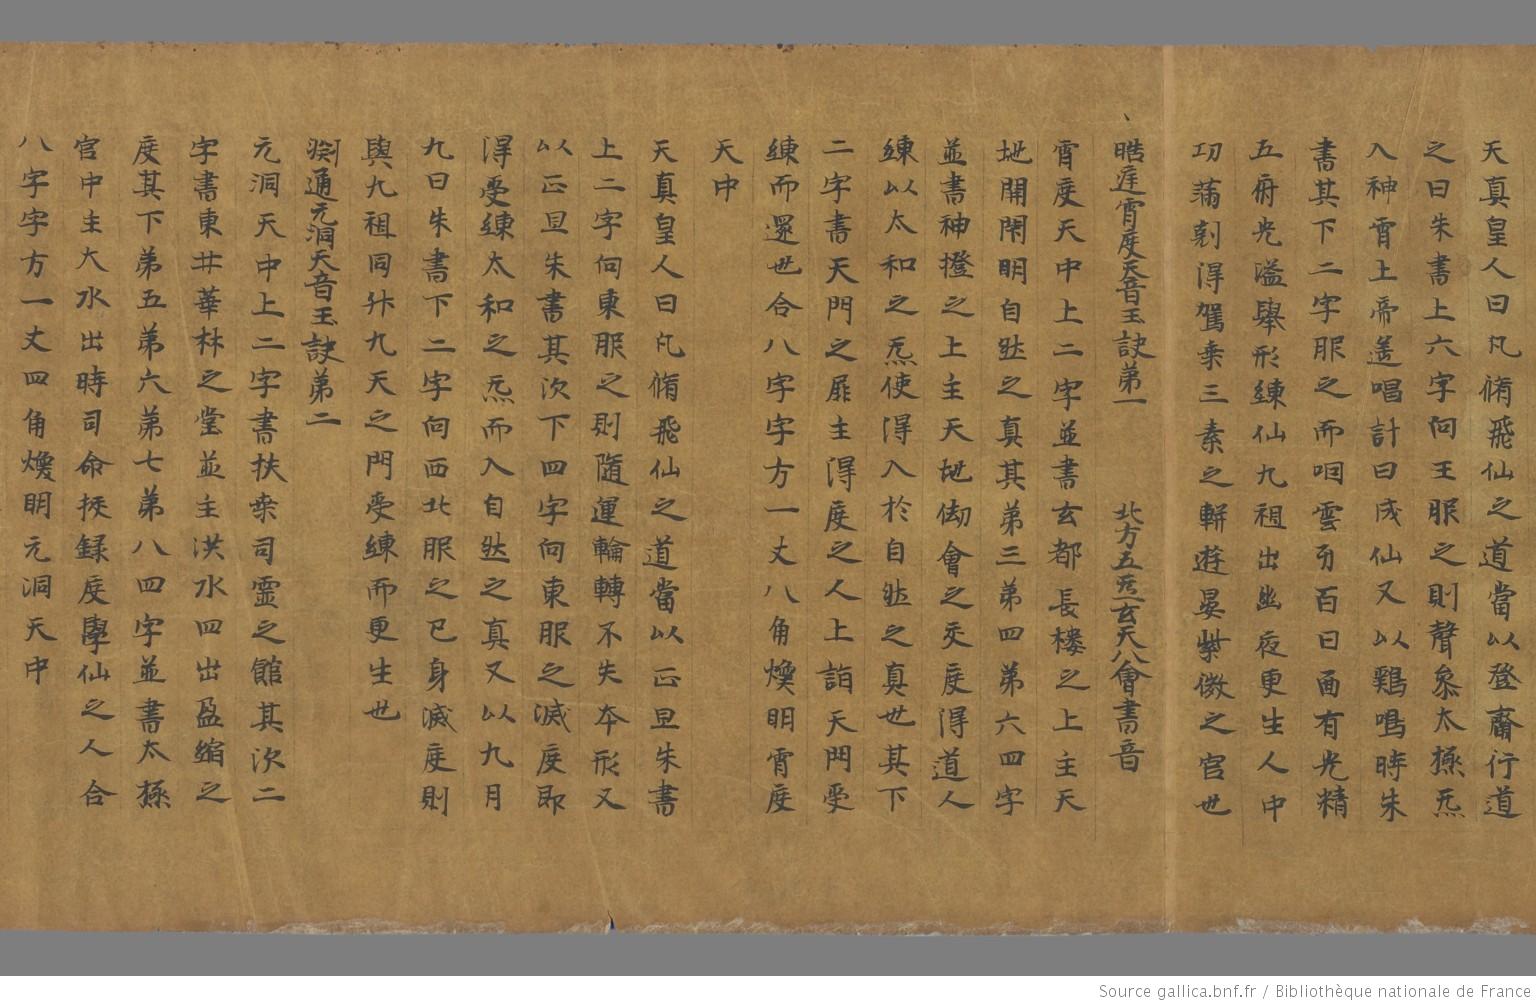 天真皇人曰凡脩飛仙之道當以登齋行道
之日朱書上六字向王服之則聲參太極炁
入神霄上帝遥唱計日成仙又以鷄鳴時朱
書其下二字服之而咽雲牙百日面有光精
五府光溢舉形練仙九祖出幽夜更生人中
功蒲剋得駕乗三素之軿遊晏紫微之官也
晧遅霄度天音玉訣第一 北方五炁玄天八會書音
霄度天中上二字並書玄都長樓之上主天
地開閇明自然之真其第三第四第六四字
並書神燈之上主天地劫會之交度得道人
練以太和之炁使得入於自然之真也其下
二字書天門之扉主得度之人上詣天門受
練而還也合八字字方一丈八角煥明霄度
天中
天真皇人曰凡脩飛仙之道當以正旦朱書
上二字向東服之則随運輪轉不失夲形又
以正旦朱書其次下四字向東服之滅度即
得受練太和之炁而入自然之真又以九月
九日朱書下二字向西北服之己身滅度則
與九祖同升九天之門受練而更生也
淵通元洞天音玉訣第二
元洞天中上二字書扶桒司靈之館其次二
字書東井華林之堂並主洪水四出盈縮之
度其下第五第六第七第八四字並書太極
官中主大水出時司命挍録度學仙之人合
八字字方一丈四角煥明元洞天中
Source gallica.bnf.fr / Bibliothèque nationale de France